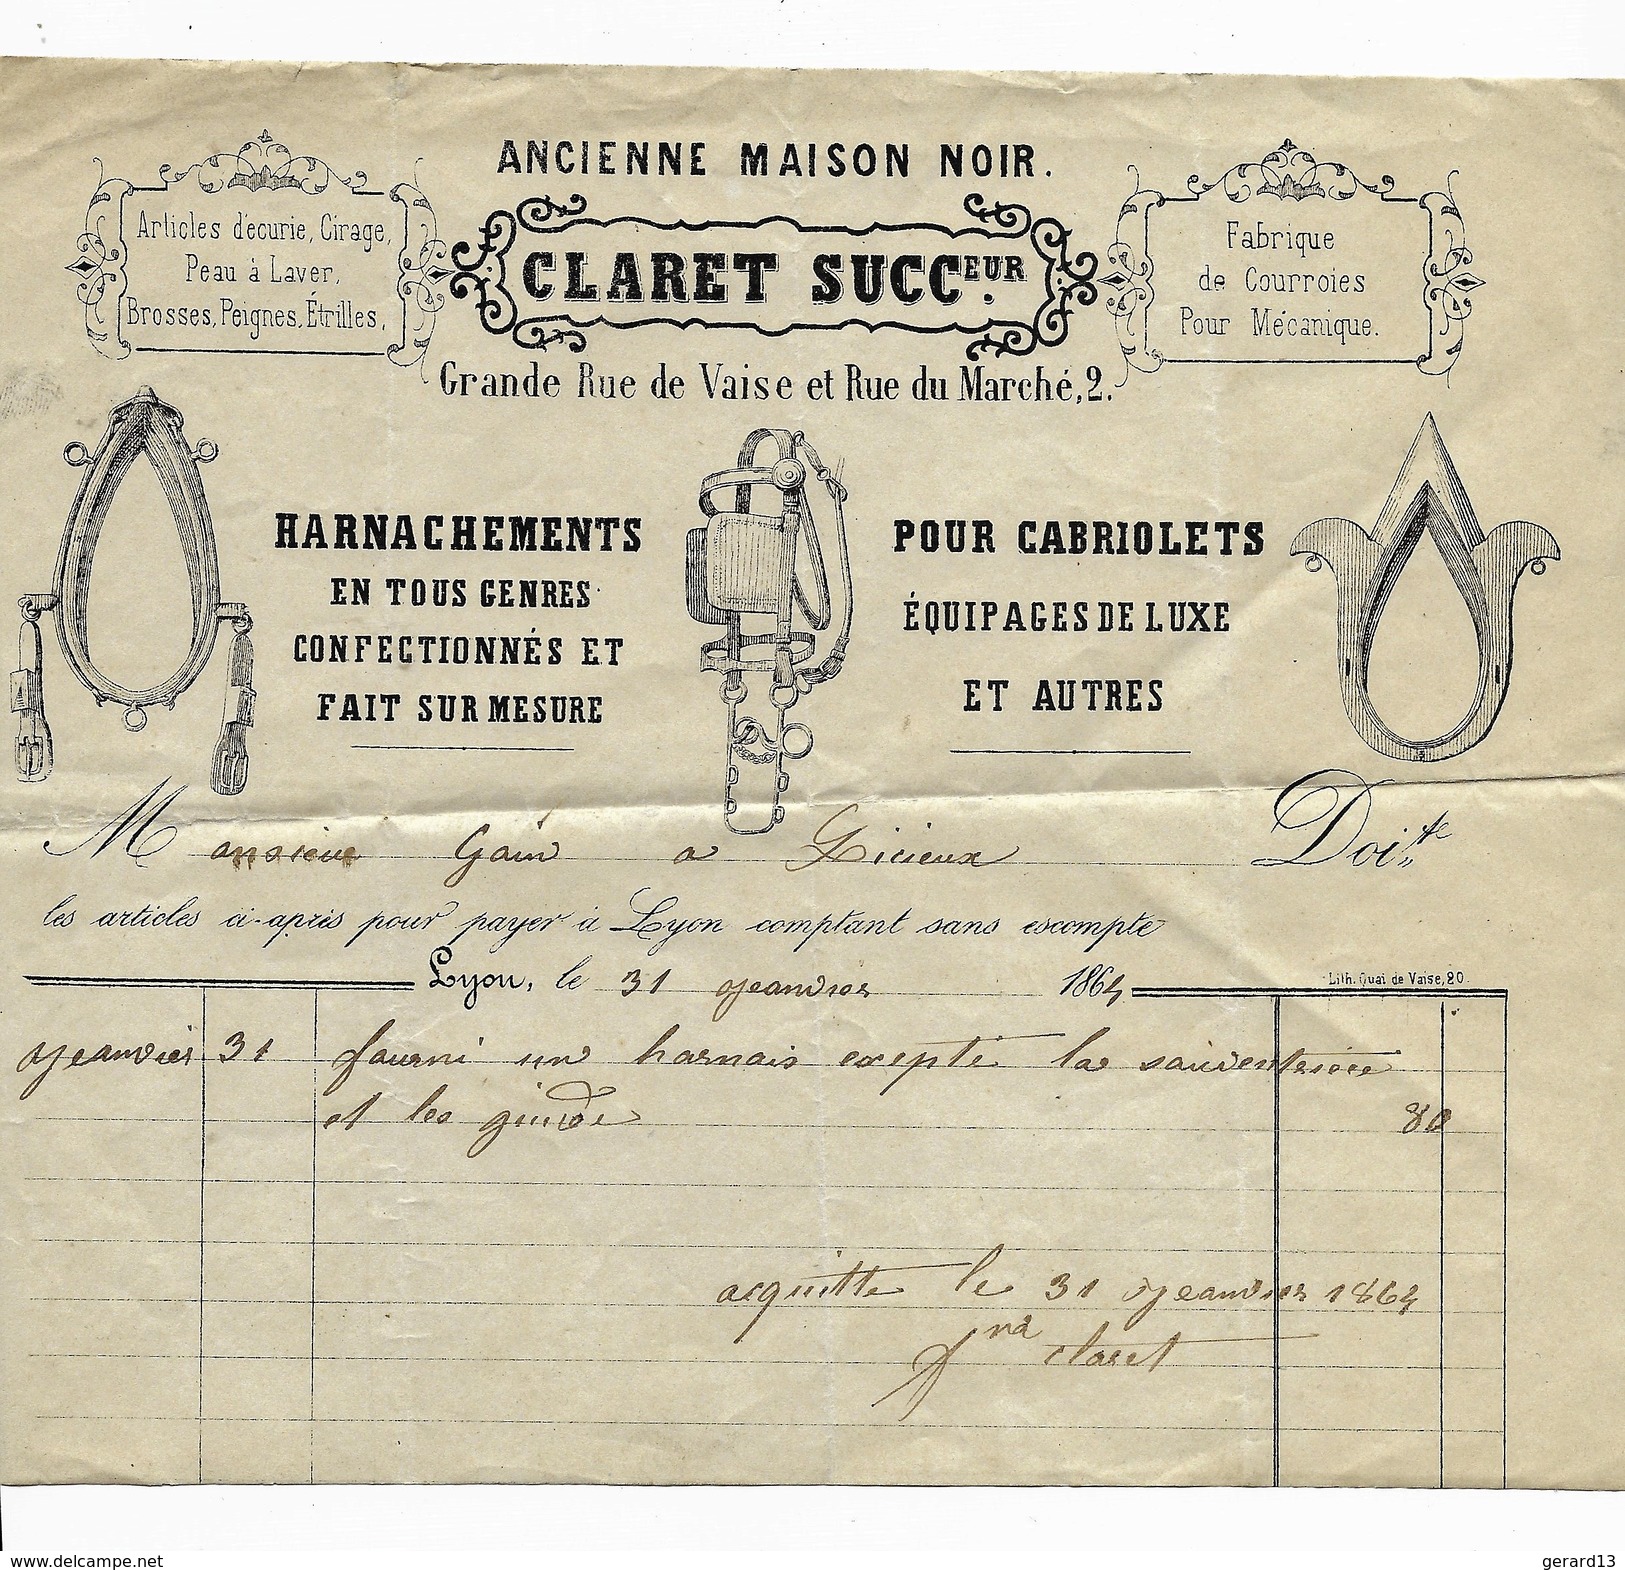 ANCIENNE MAISON NOIR.
Articles d'écurie, Cirage,
Peau à Laver,
Brosses, Peignes, Étrilles,
CLARET SUCC.EUR
Fabrique
de Courroies
Pour Mécanique.
Grande Rue de Vaise et Rue du Marché, 2.
HARNACHEMENTS
EN TOUS GENRES
CONFECTIONNÉS ET
FAIT SUR MESURE
POUR CABRIOLETS
ÉQUIPAGES DE LUXE
ET AUTRES
Monsieur Gain a Licieux Doit
les articles ci-après pour payer à Lyon comptant sans escompte
Lyon, le 31 Jeanvier 1864
Lith. Quai de Vaise, 20
Jeanvier 31 fourni un harnais exepté la souventriere
et les guide 80
acquitte le 31 Jeanvier 1864
claret
delcampe.net
gerard13